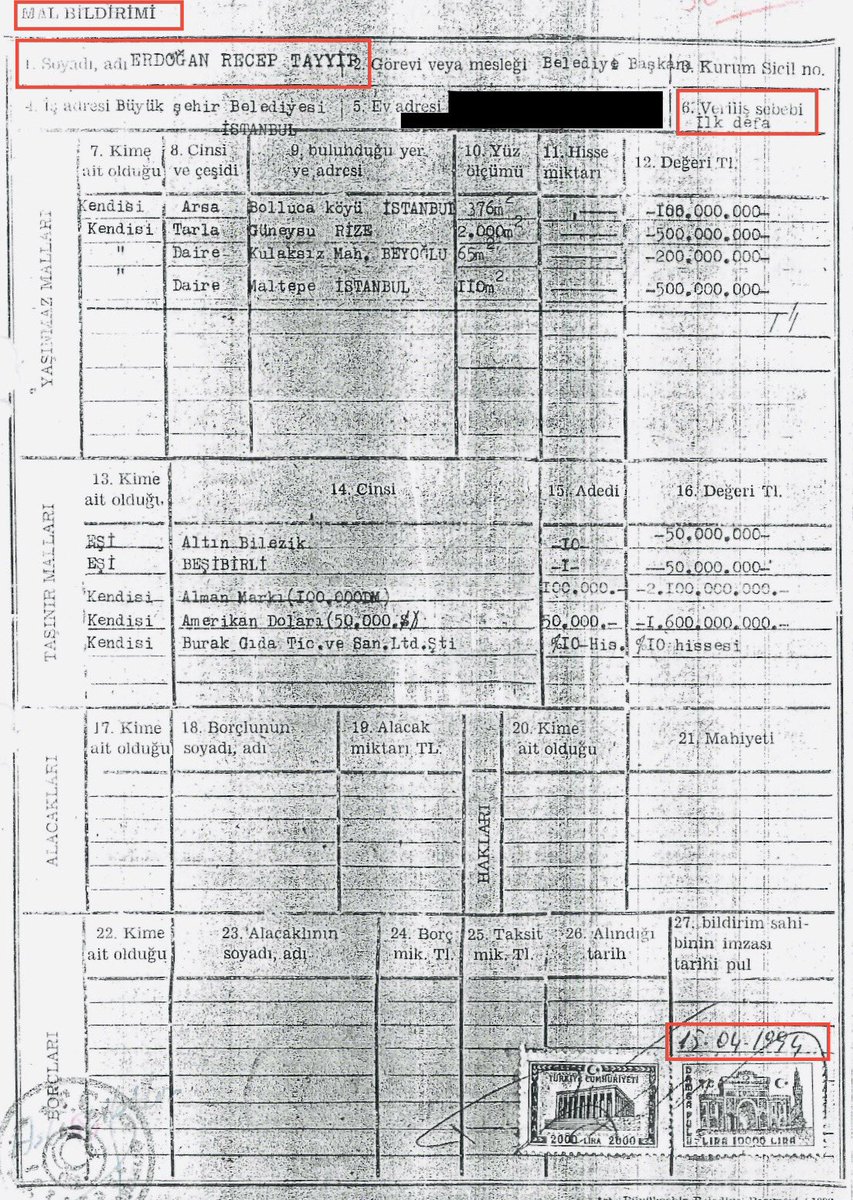 MAL BİLDİRİMİ
1. Soyadı, adı ERDOĞAN RECEP TAYYİP 2. Görevi veya mesleği Belediye Başkanı 3. Kurum Sicil no.
4. İş adresi Büyük şehir Belediyesi İSTANBUL 5. Ev adresi 6. Veriliş sebebi İlk defa
YAŞINMAZ MALLARI
7. Kime ait olduğu 8. Cinsi ve çeşidi 9. buluhduğu yer ve adresi 10. Yüz ölçümü 11. Hisse miktarı 12. Değeri Tl.
Kendisi Arsa Bolluca köyü İSTANBUL 376m² -100.000.000-
Kendisi Tarla Güneysu RİZE 2.000m² -500.000.000-
" Daire Kulaksız Mah. BEYOĞLU 65m² -200.000.000-
" Daire Maltepe İSTANBUL 110m² -500.000.000-
TAŞINIR MALLARI
13. Kime ait olduğu 14. Cinsi 15. Adedi 16. Değeri Tl.
EŞİ Altın Bilezik -10- -50.000.000-
EŞİ BEŞİBİRLİ -1- -50.000.000-
Kendisi Alman Markı(100.000DM) 100.000.- -2.100.000.000.-
Kendisi Amerikan Doları(50.000.$) 50.000.- -1.600.000.000.-
Kendisi Burak Gıda Tic.ve San.Ltd.Şti %10-His. %10 hissesi
ALACAKLARI
17. Kime ait olduğu 18. Borçlunun soyadı, adı 19. Alacak miktarı TL.
HAKLARI
20. Kime ait olduğu 21. Mahiyeti
BORÇLARI
22. Kime ait olduğu 23. Alacaklının soyadı, adı 24. Borç mik. Tl. 25. Taksit mik. Tl. 26. Alındığı tarih 27. bildirim sahibinin imzası tarihi pul
15-04-1994
TÜRKİYE CUMHURİYETİ
2000 LIRA 2000
DAMGA PULU
LIRA 10000 LIRA